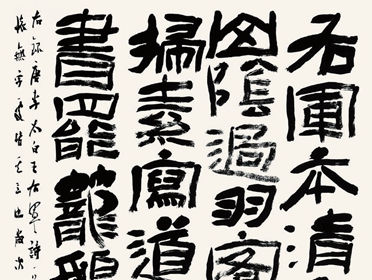 右軍本清
山陰過羽客
掃素寫道
書罷籠鵝
右錄唐李太白王右軍詩